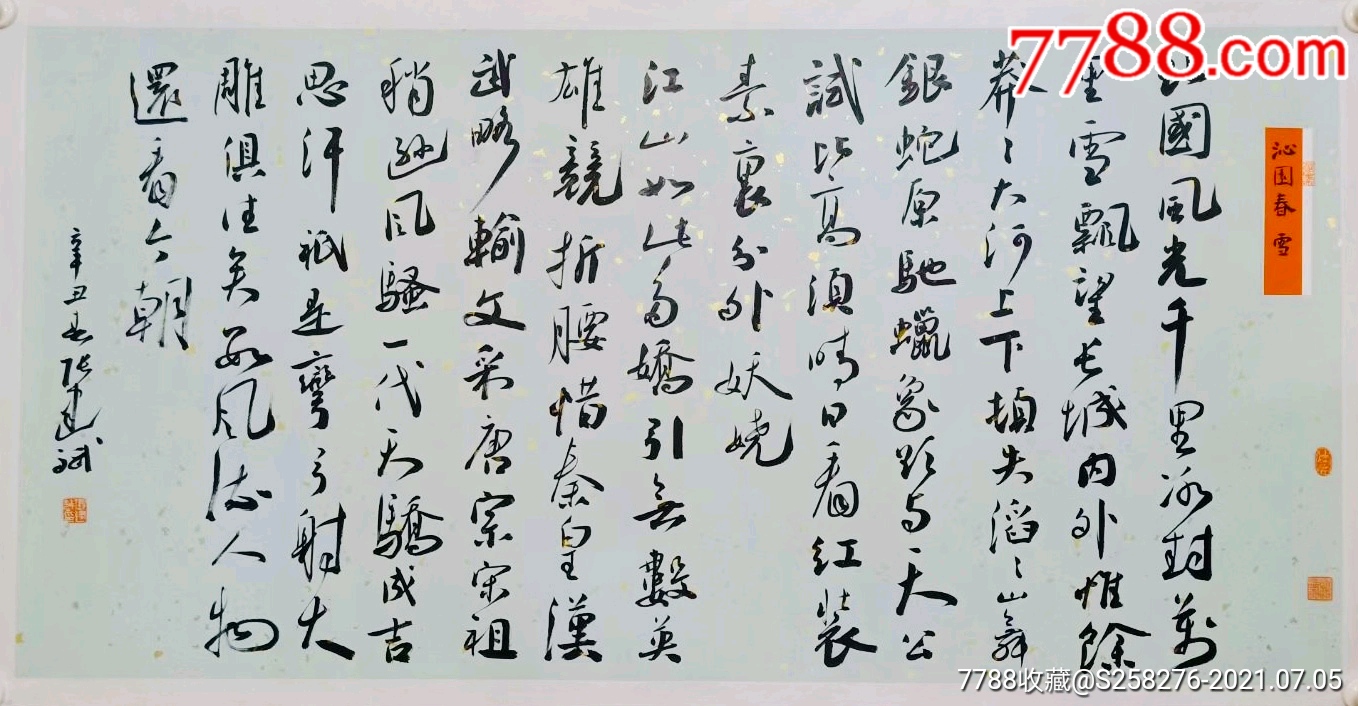 7788.com
沁园春 雪
北國風光千里冰封萬
里雪飄望長城內外惟餘
莽〻大河上下頓失滔〻山舞
銀蛇原馳蠟象欲与天公
試比高須晴日看红裝
素裹分外妖嬈
江山如此多嬌引無數英
雄競折腰惜秦皇漢
武略輸文采唐宗宋祖
稍遜風騷一代天驕成吉
思汗祇是彎弓射大
雕俱往矣數風流人物
還看今朝
辛丑春張建斌
7788收藏@S258276-2021.07.05